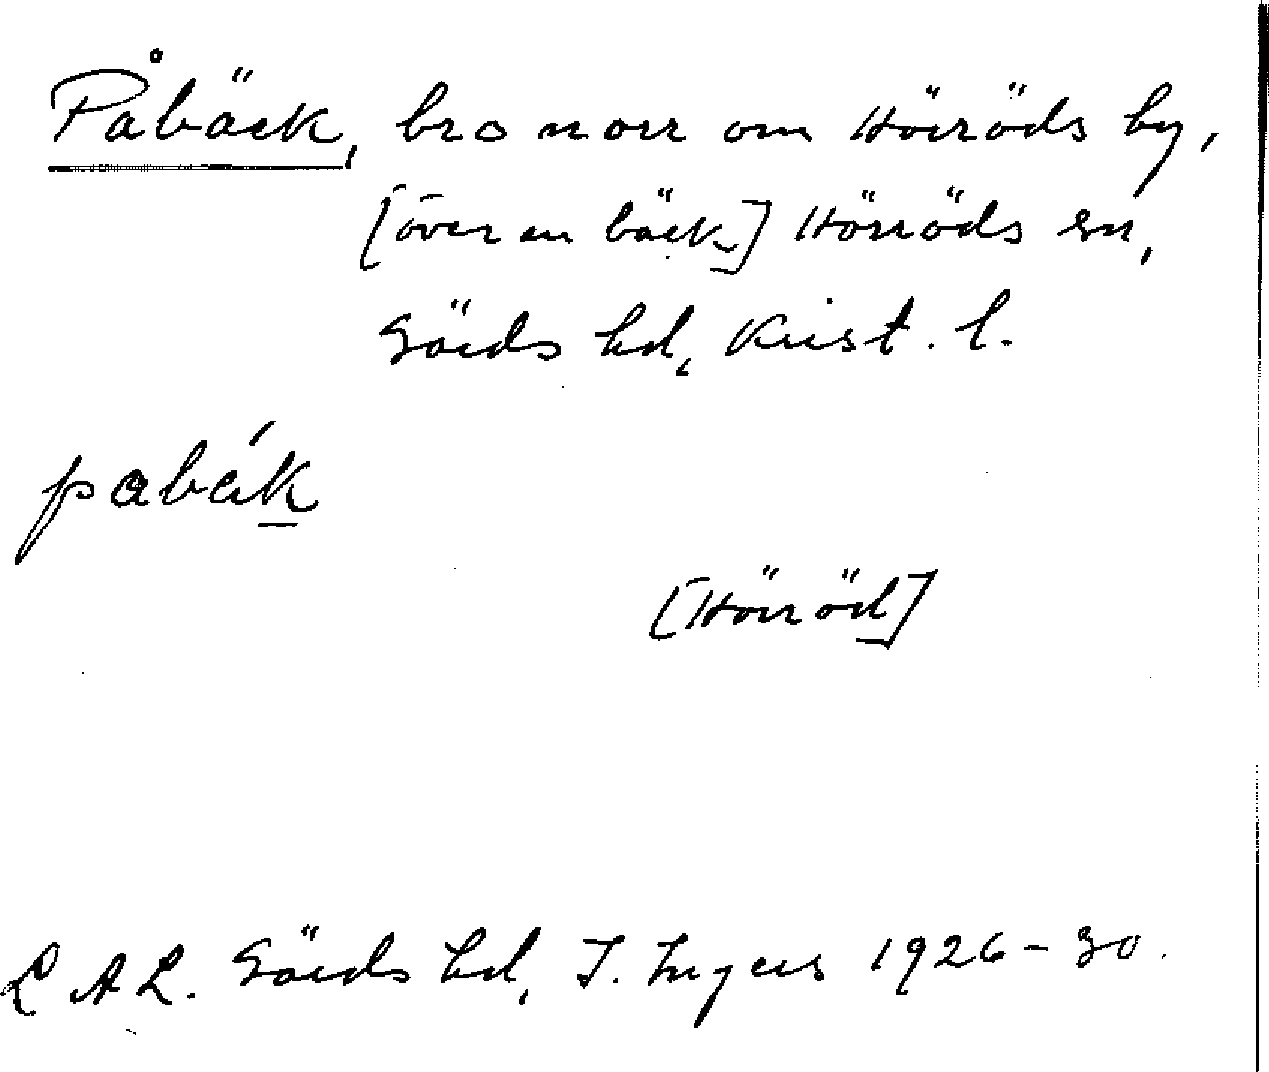 Påbäck, bro norr om Hörröds by,
[över en bäck] Hörröds sn,
Gärds hd, Krist. l.
pabäḱk
[Hörröd]
LAL. Gärds hd, I. Ingers 1926-30.